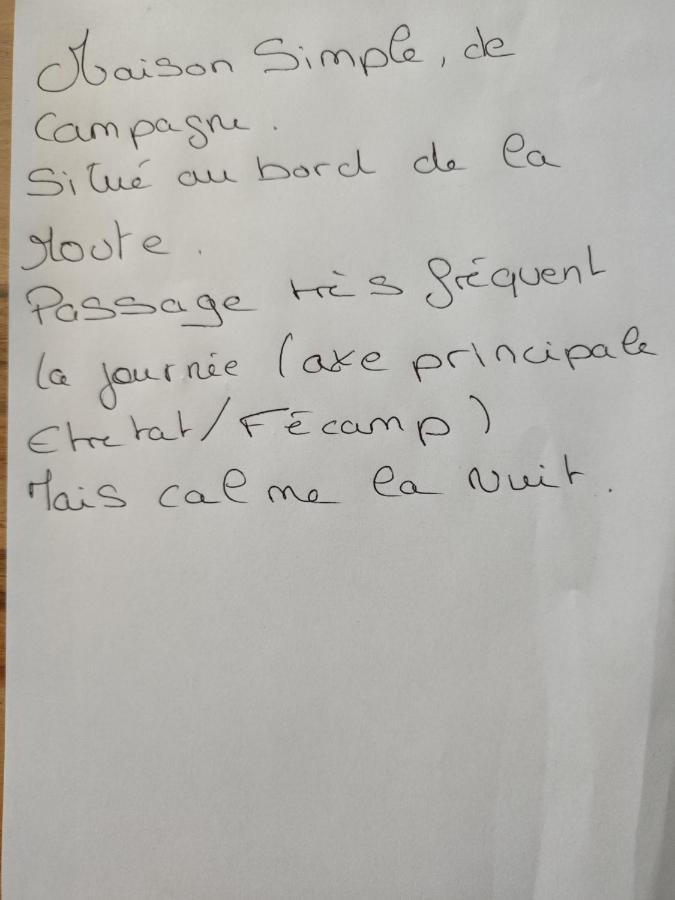 Maison Simple, de
Campagne.
Situé au bord de la
route.
Passage très fréquent
la journée (axe principale
Etretat/Fécamp)
Mais calme la nuit.